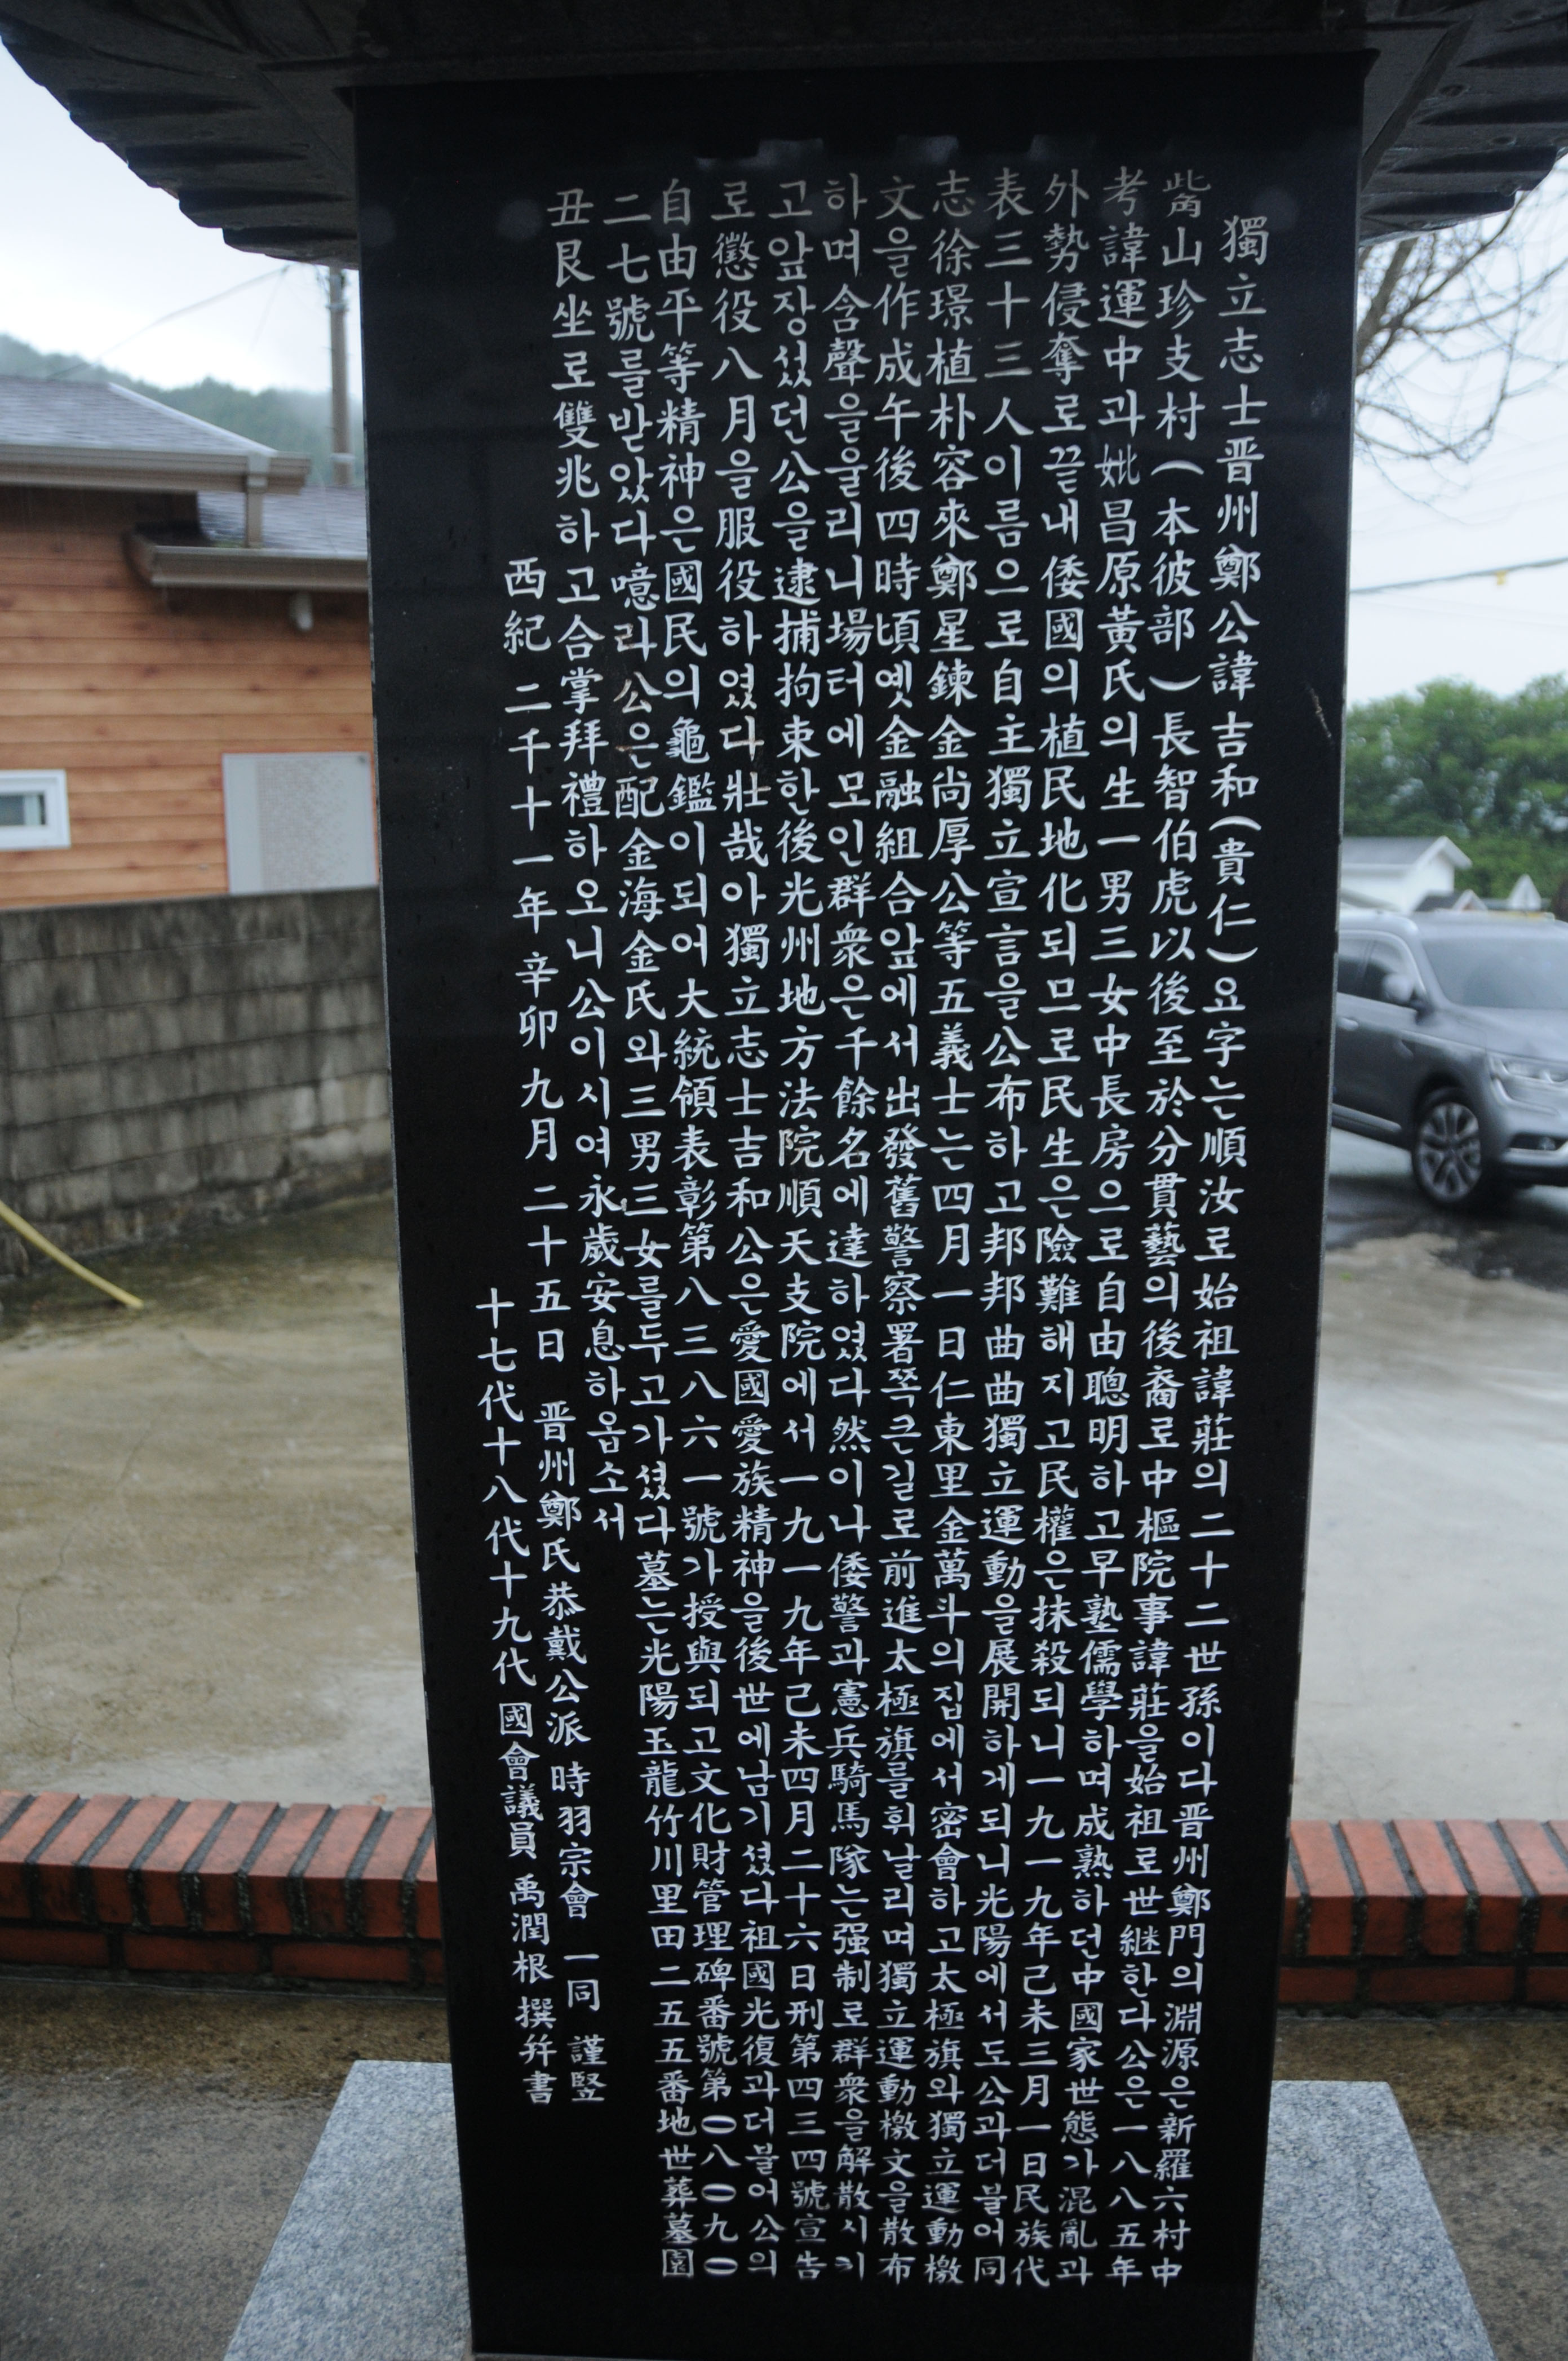 獨立志士晋州鄭公諱吉和(貴仁)요字는順汝로始祖諱莊의二十二世孫이다晋州鄭門의淵源은新羅六村中
觜山珍支村(本彼部)長智伯虎以後至於分貫藝의後裔로中樞院事諱莊을始祖로世継한다公은一八八五年
考諱運中과妣昌原黃氏의生一男三女中長房으로自由聰明하고早塾儒學하며成熟하던中國家世態가混亂과
外勢侵奪로끝내倭國의植民地化되므로民生은險難해지고民權은抹殺되니一九一九年己未三月一日民族代
表三十三人이름으로自主獨立宣言을公布하고邦邦曲曲獨立運動을展開하게되니光陽에서도公과더불어同
志徐璟植朴容來鄭星鍊金尚厚公等五義士는四月一日仁東里金萬斗의집에서密會하고太極旗와獨立運動檄
文을作成午後四時頃옛金融組合앞에서出發舊警察署쪽큰길로前進太極旗를휘날리며獨立運動檄文을散布
하며含聲을울리니場터에모인群衆은千餘名에達하였다然이나倭警과憲兵騎馬隊는强制로群衆을解散시키
고앞장섰던公을逮捕拘束한後光州地方法院順天支院에서一九一九年己未四月二十六日刑第四三四號宣告
로懲役八月을服役하였다壯哉아獨立志士吉和公은愛國愛族精神을後世에남기셨다祖國光復과더불어公의
自由平等精神은國民의龜鑑이되어大統領表彰第八三八六一號가授與되고文化財管理碑番號第〇八〇九〇
二七號를받았다噫라公은配金海金氏와三男三女를두고가셨다墓는光陽玉龍竹川里田二五五番地世葬墓園
丑艮坐로雙兆하고合掌拜禮하오니公이시여永歲安息하옵소서
西紀 二千十一年 辛卯 九月 二十五日 晋州鄭氏恭戴公派 時羽宗會 一同 謹竪
十七代十八代十九代 國會議員 禹潤根 撰幷書